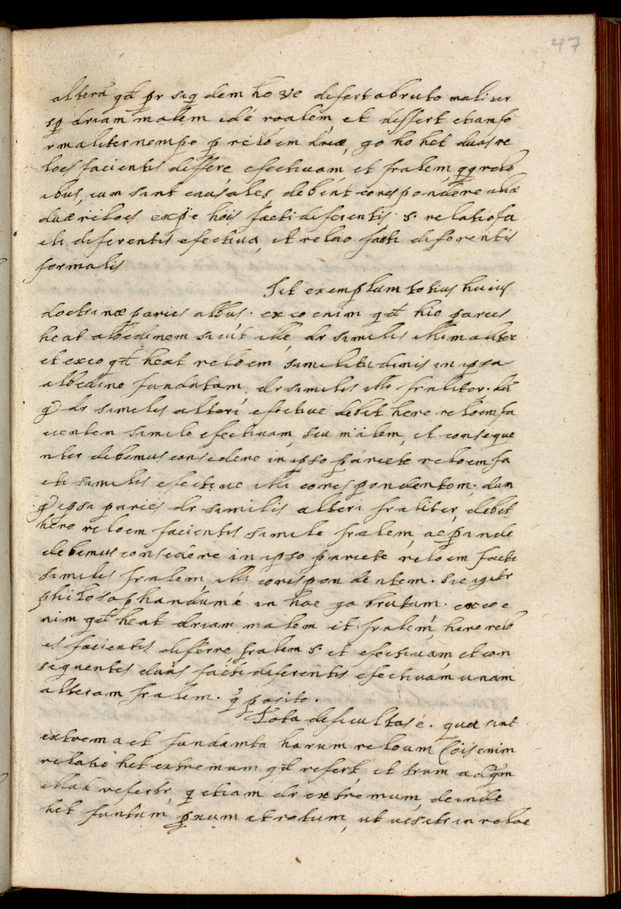 47
altera qd pr seq dem ho ve difert a bruto maliter
sp driam malem idé roalem et differt etiam fo
rmaliter nempe p reloem driæ, go ho het duas re
loes facientis differe efectivam et fralem qq relo
ibus, cum sint causales debent corespondere aliæ
duæ reloes ex pe hois facti diferentis s. relatio fa
cti diferentis efectiva, et relao facti diferentis
formalis
Sit exemplum totius huius
doctrinæ paries albus. ex eo enim qd hic paries
heat albedinem sicut ille dr similis illi maliter
et ex eo qd heat reloem similitudinis in ipsa
albedine fundatam, dr similis illi fraliter. dū
q dr similis alteri efective debet here reloem fa
cientem simile efectivam, seu malem, et conseque
nter debemus considere in ipso pariete reloem fa
cti similis efective illi corespondentem. dum
q ipsa paries dr similis alteri fraliter, debet
here reloem facientis simile fralem, ac pinde
debemus considere in ipso pariete reloem facti
similis fralem, illi corespondentem. sic igitr
philosophandum é in hoc go brutum. ex eo e
nim qd heat driam malem et fralem, here relo
es facientis diferre fralem s. et efectivam et con
sequentes duas facti diferentis efectivam unam
alteram fralem. q posito.
Tota dificultas é. quæ sint
extrema et fundamta harum reloum (ois enim
relatio het extremum qd refert et trum ad qm
illud refertr q etiam dr extremum, deinde
het funtum pxum et rotum, ut ... in reloe